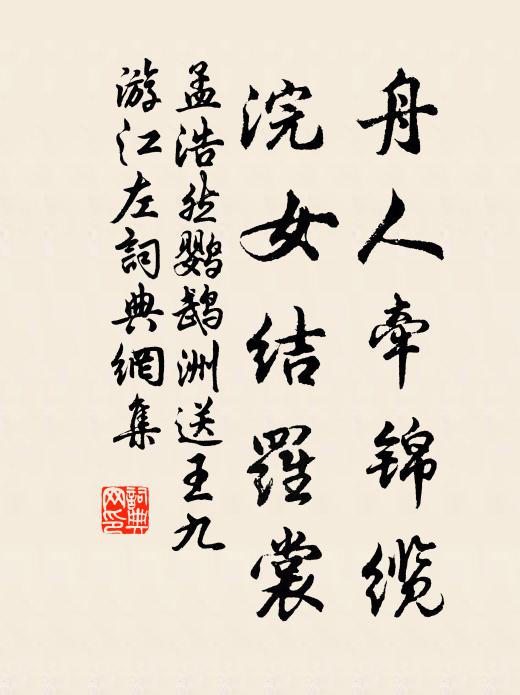 舟人牵锦缆
浣女结羅裳
孟浩然鹦鹉洲送王九
游江左詞典網集
詞典
网印